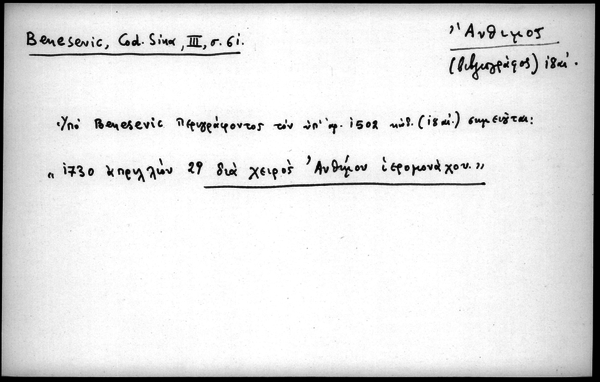 Benesevic, Cod. Sina, III, σ. 61.
Ἄνθιμος
(βιβλιογράφος) ιηαί.
Ὑπό Benesevic περιγράφοντος τόν ὑπ' ἀρ. 1502 κώδ. (ιηαί.) σημειοῦται:
„ 1730 ἀπριλλίου 29 διά χειρός Ἀνθίμου ἱερομονάχου.”